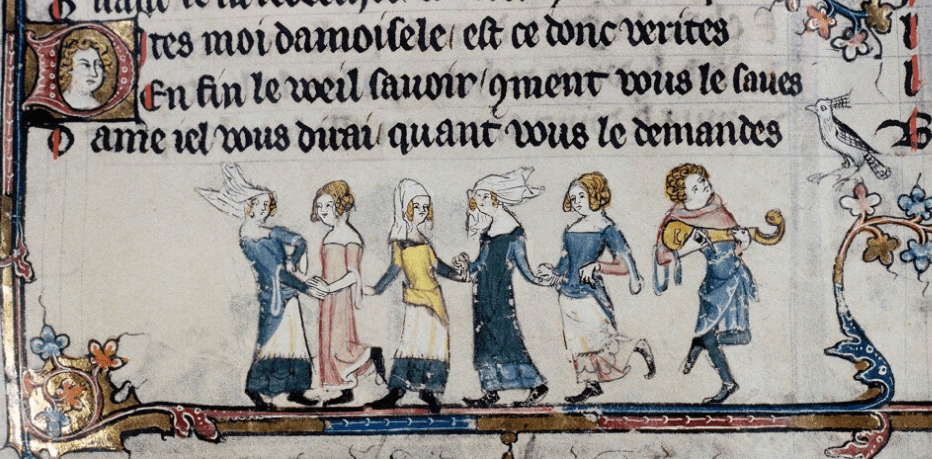 Dites moi damoisele / est ce donc verites
En fin le weil sauoir / qment vous le saues
Dame iel vous dirai / quant vous le demandes